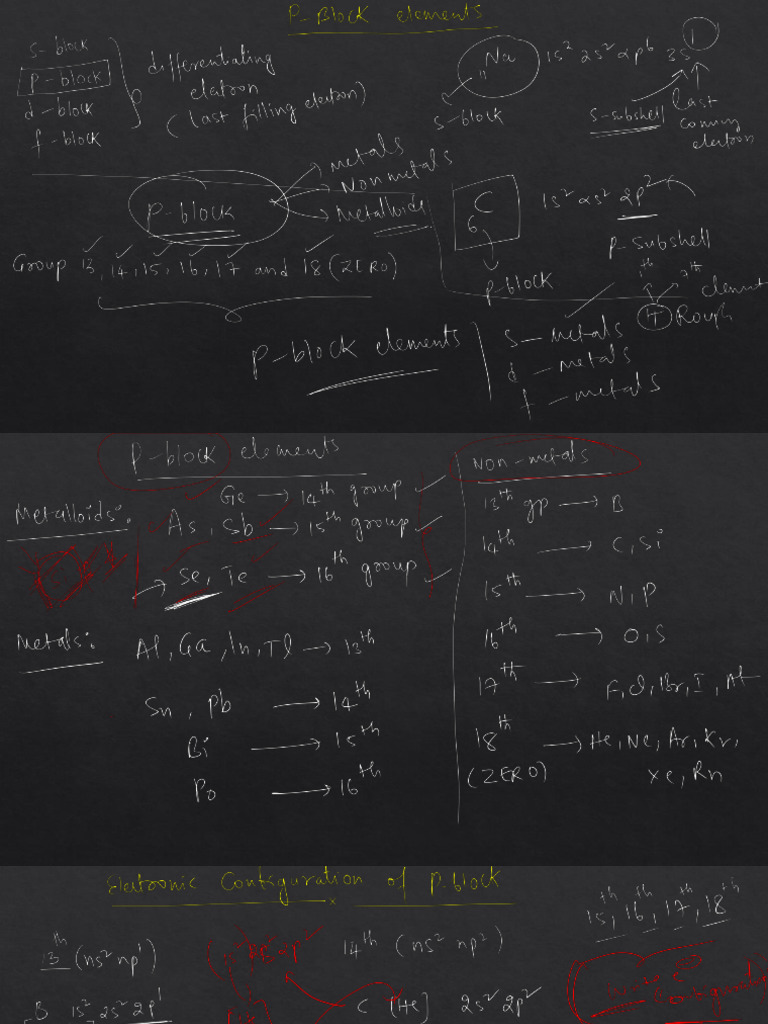 P-Block elements
s-block
p-block
d-block
f-block
differentiating
elatron
(last filling electron)
11 Na
1s² 2s² 2p⁶ 3s¹
s-block
s-subshell
last
coming
electron
p-block
metals
Nonmetals
Metalloids
C
6
1s² 2s² 2p²
p-subshell
p-block
Group 13, 14, 15, 16, 17 and 18 (ZERO)
P-block elements
s - metals
d - metals
f - metals
Rough
P-block elements
Metalloids:
Ge → 14th group
As, Sb → 15th group
Se, Te → 16th group
Metals:
Al, Ga, In, Tl → 13th
Sn, Pb → 14th
Bi → 15th
Po → 16th
Non-metals
13th gp → B
14th → C, Si
15th → N, P
16th → O, S
17th → F, Cl, Br, I, At
18th → He, Ne, Ar, Kr,
(ZERO) Xe, Rn
Electronic Configuration of P-block
13th (ns² np¹)
B 1s² 2s² 2p¹
14th (ns² np²)
C [He] 2s² 2p²
15th, 16th, 17th, 18th